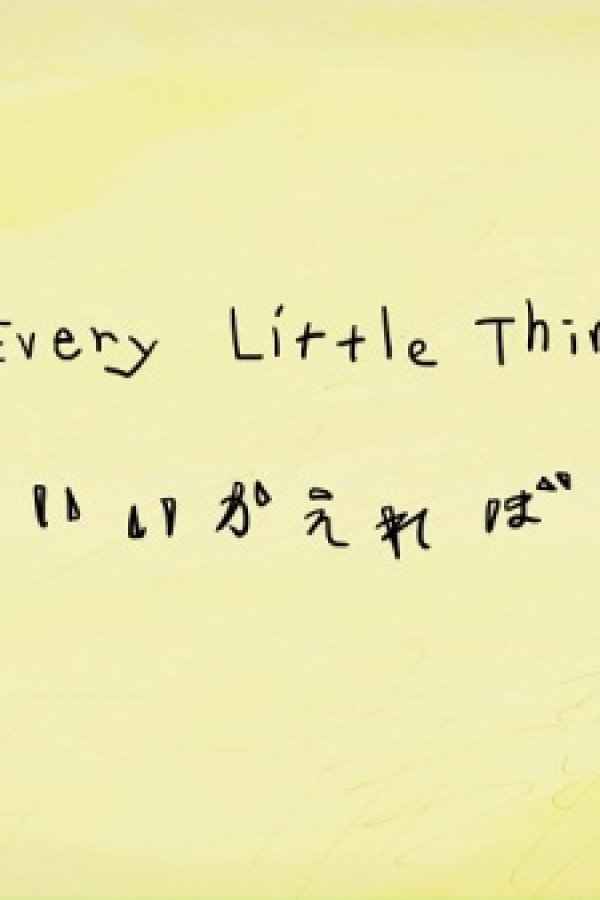 Every Little Thin
いいかえれば